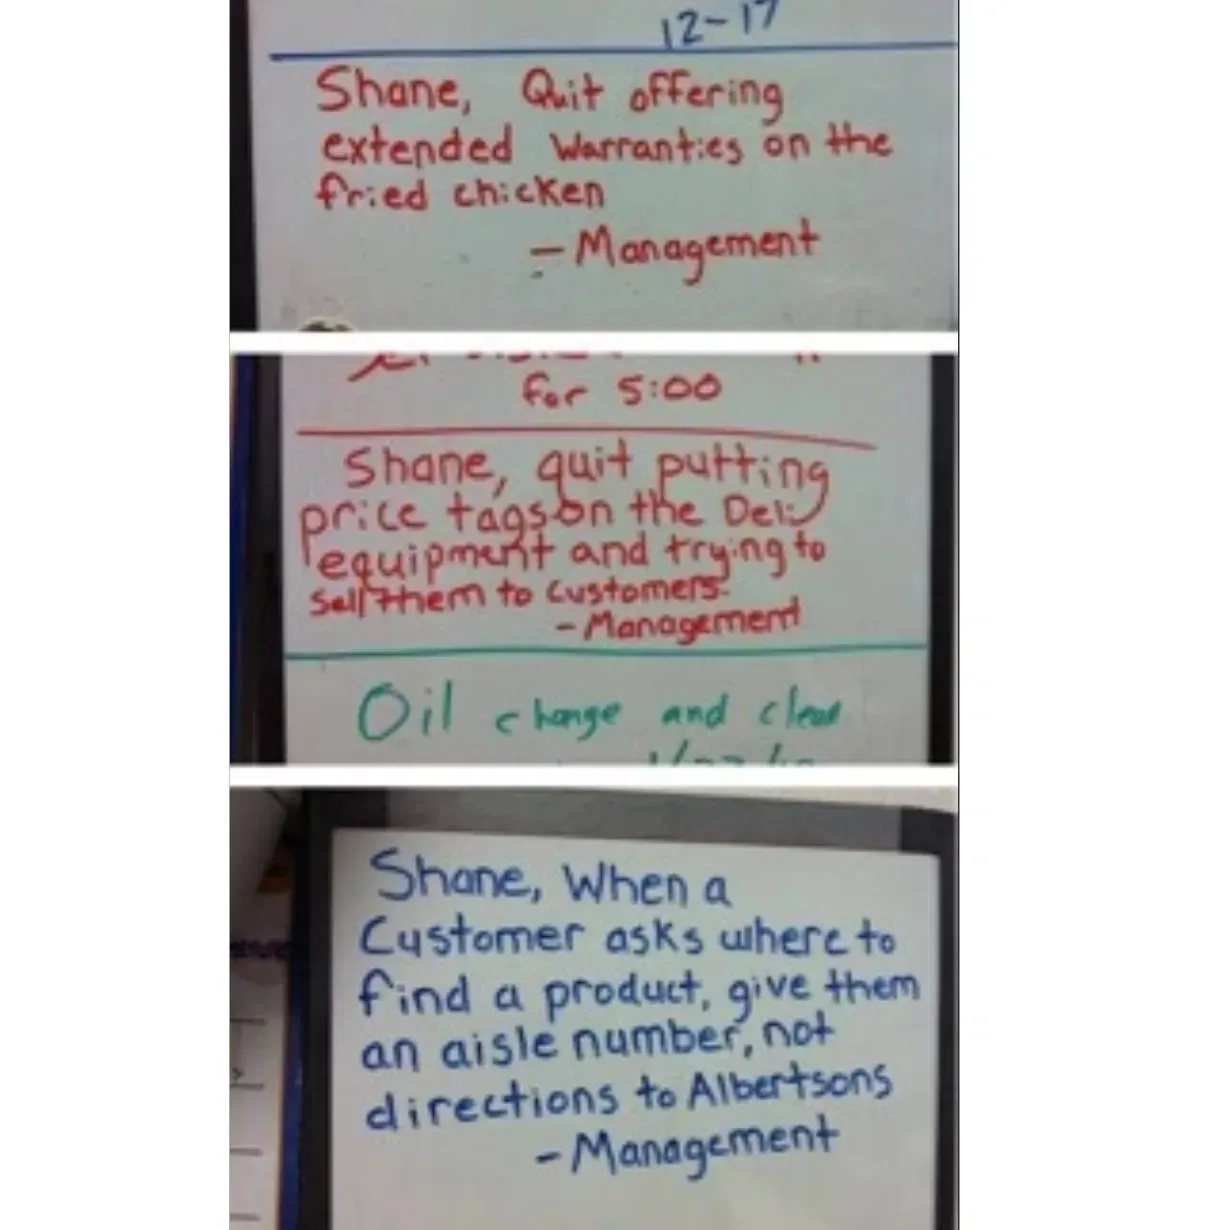 12-17
Shane, Quit offering
extended Warranties on the
fried chicken
- Management
for 5:00
Shane, quit putting
price tags on the Deli
equipment and trying to
sell them to customers.
- Management
Oil change and clean
Shane, When a
Customer asks where to
find a product, give them
an aisle number, not
directions to Albertsons
- Management